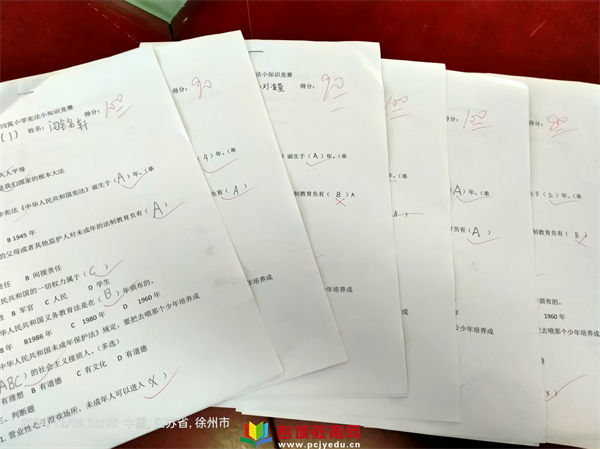 闫窝小学宪法小知识竞赛
得分：
100
(1) 姓名：
人人平等
是我们国家的根本大法
宪法《中华人民共和国宪法》诞生于（A）年。（单
B 1945 年
的父母或者其他监护人对未成年的法制教育负有（A）
责任 B 间接责任
民共和国的一切权力属于（C）
B 军官 C 人民 D 学生
华人民共和国义务教育法是在（B）年颁布的。
8 年 B1986 年 C 1980 年 D 1960 年
中华人民共和国未成年保护法》规定，要把去哦那个少年培养成
ABC）的社会主义接班人。（多选）
有理想 B 有道德 C 有文化 D 有道德
三、判断题
1. 营业性七夕游戏场所，未成年人可以进入（X）
得分：
90
年。（单
负有（A）
法小知识竞赛
得分：
90
诞生于（A）年。（单
制教育负有（B）A
年颁布的。
少年培养成
得分：
100
A）
得分：
100
A）年。（单
负有（A）
公少年培养成
得分：
80
）年。（单
制教育负有（B）
年颁布的。
1960 年
要把去哦那个少年培养成
10:15 中国, 江苏省, 徐州市
彭城教育网
www.pcjyedu.cn